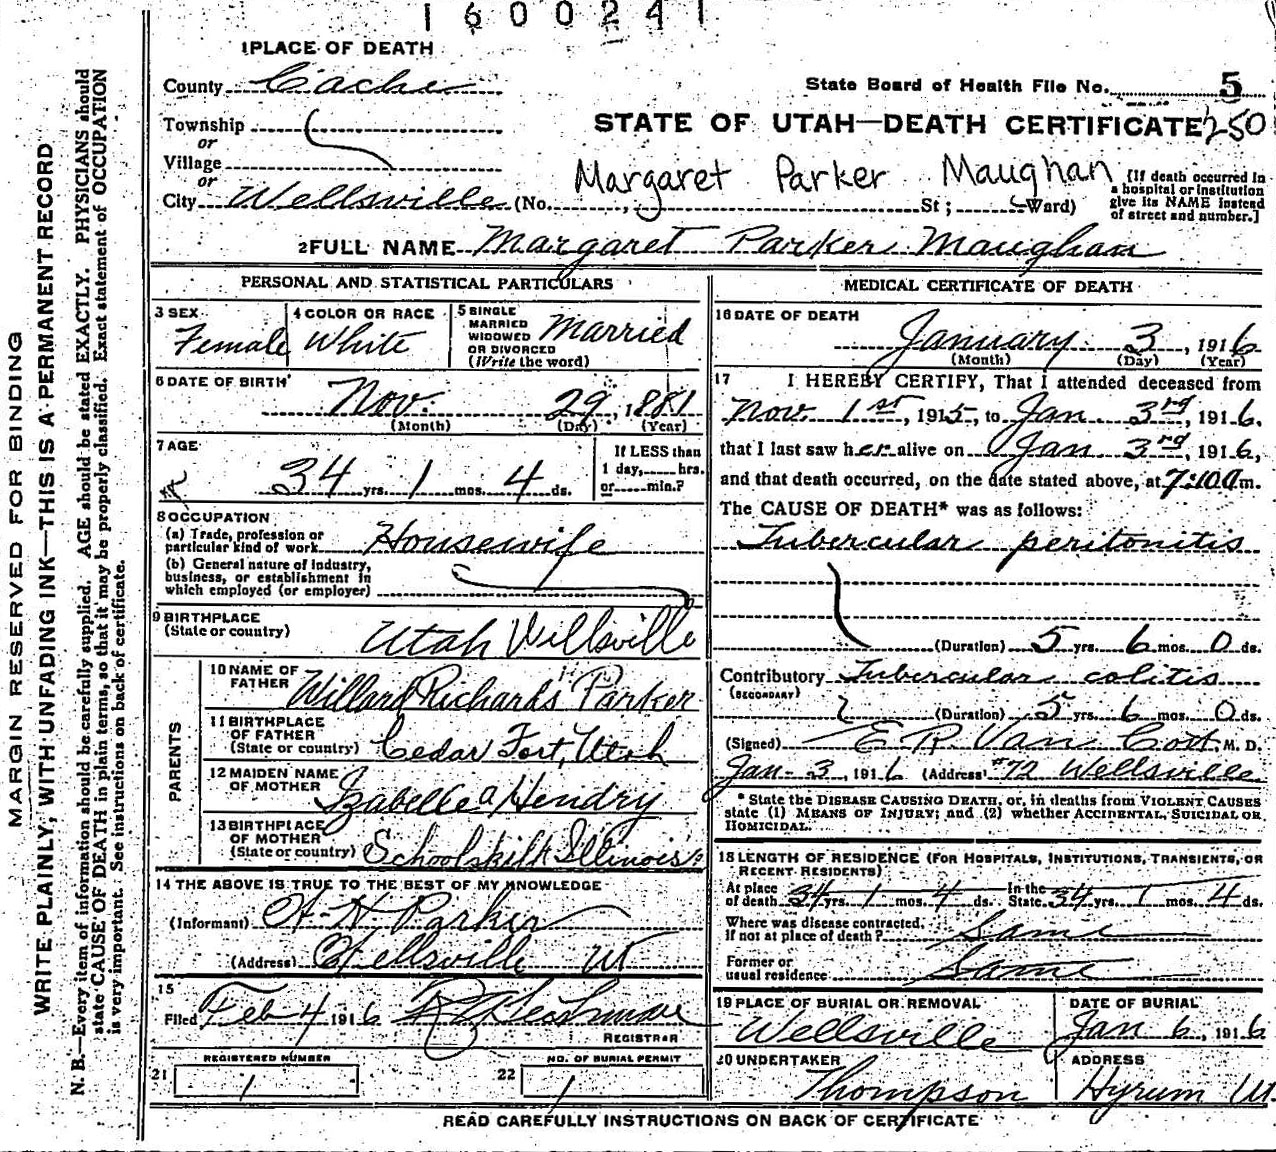 1600241
1 PLACE OF DEATH
County Cache
State Board of Health File No. 5
Township
or
STATE OF UTAH—DEATH CERTIFICATE 250
Village
or
Margaret Parker Maughan
City Wellsville (No. , St ; Ward)
[If death occurred in
a hospital or institution
give its NAME instead
of street and number.]
2 FULL NAME Margaret Parker Maughan
PERSONAL AND STATISTICAL PARTICULARS
3 SEX
Female
4 COLOR OR RACE
White
5 SINGLE
MARRIED
WIDOWED
OR DIVORCED
(Write the word)
Married
6 DATE OF BIRTH
Nov. 29, 1881
(Month) (Day) (Year)
7 AGE
34 yrs. 1 mos. 4 ds.
If LESS than
1 day, hrs.
or min.?
8 OCCUPATION
(a) Trade, profession or
particular kind of work Housewife
(b) General nature of industry,
business, or establishment in
which employed (or employer)
9 BIRTHPLACE
(State or country) Utah Willsville
PARENTS
10 NAME OF
FATHER Willard Richards Parker
11 BIRTHPLACE
OF FATHER
(State or country) Cedar Fort, Utah
12 MAIDEN NAME
OF MOTHER Izabelle a Hendry
13 BIRTHPLACE
OF MOTHER
(State or country) Illinois
14 THE ABOVE IS TRUE TO THE BEST OF MY KNOWLEDGE
(Informant) Parker
(Address) Wellsville Ut
15
Filed Feb 4 1916
REGISTRAR
REGISTERED NUMBER
21 1
NO. OF BURIAL PERMIT
22 1
MEDICAL CERTIFICATE OF DEATH
16 DATE OF DEATH
January 3, 1916
(Month) (Day) (Year)
17 I HEREBY CERTIFY, That I attended deceased from
Nov 1st, 1915, to Jan 3rd, 1916.
that I last saw her alive on Jan 3rd, 1916,
and that death occurred, on the date stated above, at 7:10 a m.
The CAUSE OF DEATH* was as follows:
Tubercular peritonitis
(Duration) 5 yrs. 6 mos. 0 ds.
Contributory Tubercular colitis
(SECONDARY)
(Duration) 5 yrs. 6 mos. 0 ds.
(Signed) E. R. Van Cott, M. D.
Jan-3, 1916 (Address) #72 Wellsville
* State the DISEASE CAUSING DEATH, or, in deaths from VIOLENT CAUSES
state (1) MEANS OF INJURY; and (2) whether ACCIDENTAL, SUICIDAL OR
HOMICIDAL.
18 LENGTH OF RESIDENCE (FOR HOSPITALS, INSTITUTIONS, TRANSIENTS, OR
RECENT RESIDENTS)
At place In the
of death 34 yrs. 1 mos. 4 ds. State 34 yrs. 1 mos. 4 ds.
Where was disease contracted.
If not at place of death? Same
Former or
usual residence Same
19 PLACE OF BURIAL OR REMOVAL
Wellsville
DATE OF BURIAL
Jan 6, 1916
20 UNDERTAKER
Thompson
ADDRESS
Hyrum Ut.
READ CAREFULLY INSTRUCTIONS ON BACK OF CERTIFICATE
MARGIN RESERVED FOR BINDING
WRITE PLAINLY, WITH UNFADING INK—THIS IS A PERMANENT RECORD
N. B.—Every item of information should be carefully supplied. AGE should be stated EXACTLY. PHYSICIANS should
state CAUSE OF DEATH in plain terms, so that it may be properly classified. Exact statement of OCCUPATION
is very important. See instructions on back of certificate.